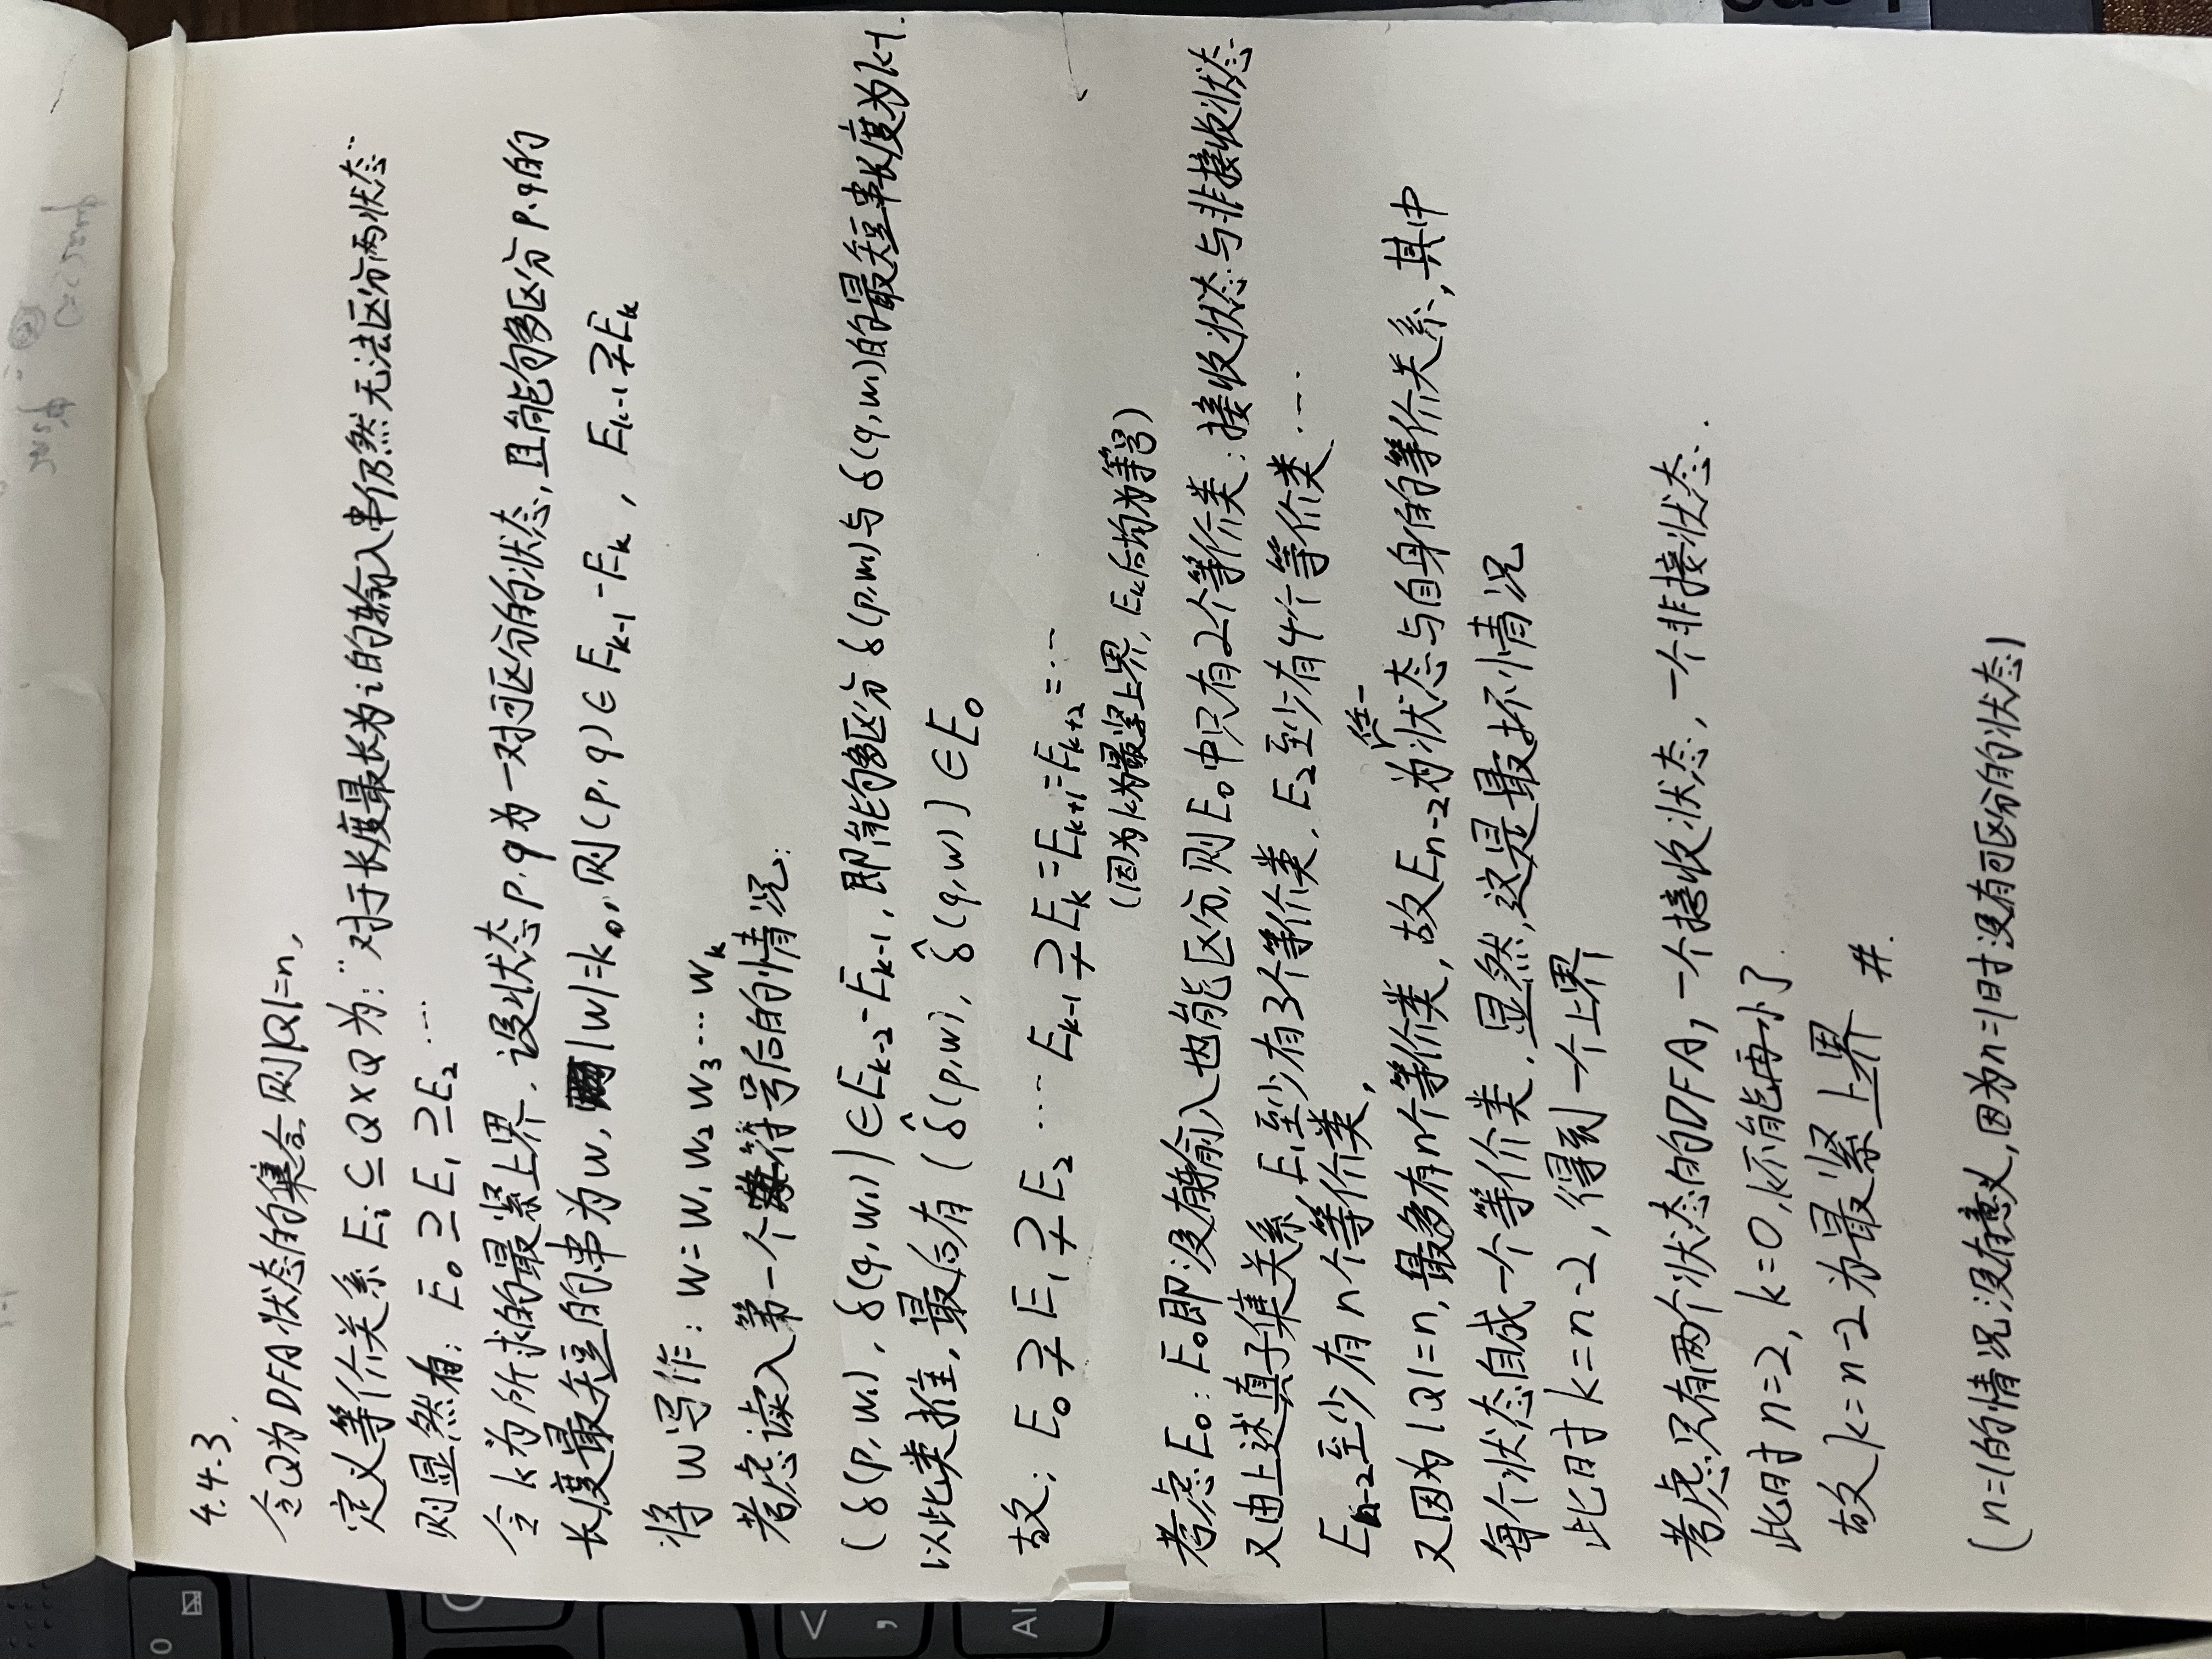 4.4.3.
令Q为DFA状态的集合,则|Q|=n,
定义等价关系 Eᵢ ⊆ Q×Q 为:"对于长度最长为i的输入串仍然无法区分两状态"
则显然有: E₀ ⊇ E₁ ⊇ E₂ ...
令k为所求的最紧上界. 设状态p.q为一对可区分的状态,且能够区分p.q的
长度最短的串为w, |w|=k, 则(p,q)∈Eₖ₋₁-Eₖ, Eₖ₋₁⊋Eₖ
将w写作: w=w₁w₂w₃...wₖ
考虑读入第一个符号后的情况:
(δ(p,w₁), δ(q,w₁))∈Eₖ₋₂-Eₖ₋₁, 即能够区分δ(p,w₁)与δ(q,w₁)的最短串长度为k-1.
以此类推,最后有(δ̂(p,w), δ̂(q,w))∈E₀
故: E₀⊋E₁⊋E₂ .... Eₖ₋₁⊋Eₖ=Eₖ₊₁=Eₖ₊₂=...
(因为k为最紧上界, Eₖ后均为等号)
考虑E₀: E₀即没有输入也能区分,则E₀中只有2个等价类:接收状态与非接收状态
又由上述真子集关系,E₁至少有3个等价类,E₂至少有4个等价类...
Eₙ₋₂至少有n个等价类,
又因为|Q|=n,最多有n个等价类,故Eₙ₋₂为任一状态与自身的等价关系,其中
每个状态自成一个等价类.显然,这是最坏情况
此时k=n-2,得到一个上界
考虑只有两个状态的DFA,一个接收状态,一个非接状态.
此时n=2,k=0,k不能再小了.
故k=n-2为最紧上界 #.
(n=1的情况没有意义,因为n=1时没有可区分的状态)
0
<
,
Al